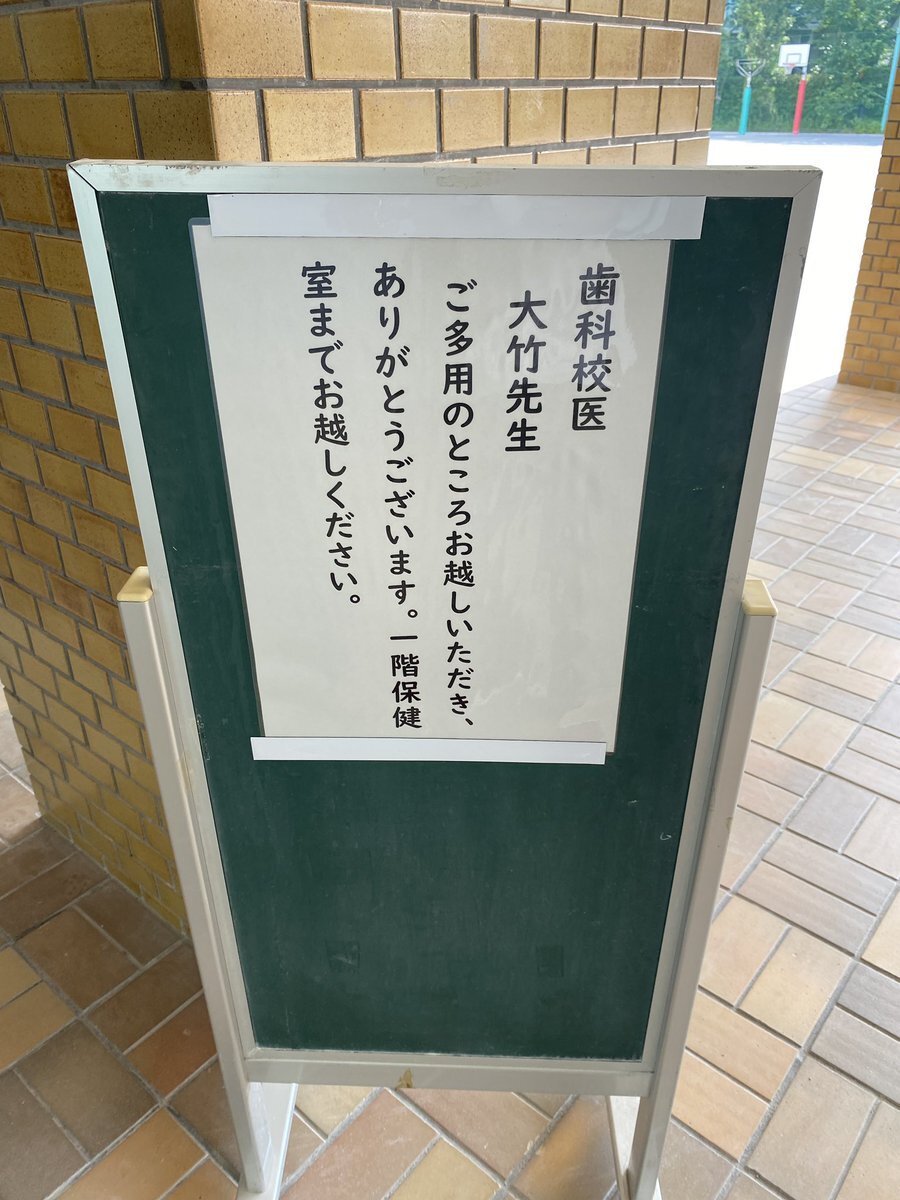 歯科校医
大竹先生
ご多用のところお越しいただき、
ありがとうございます。一階保健
室までお越しください。